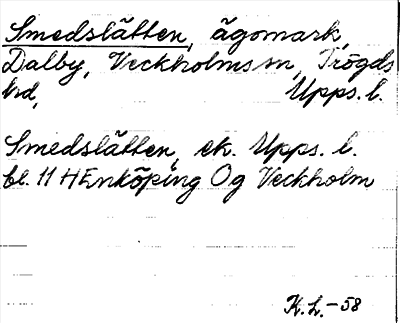 Smedslätten, ägomark,
Dalby, Veckholms sn, Trögds
hd, Upps. l.
Smedslätten, ek. Upps. l.
bl. 11 H Enköping Og Veckholm
K.L.-58